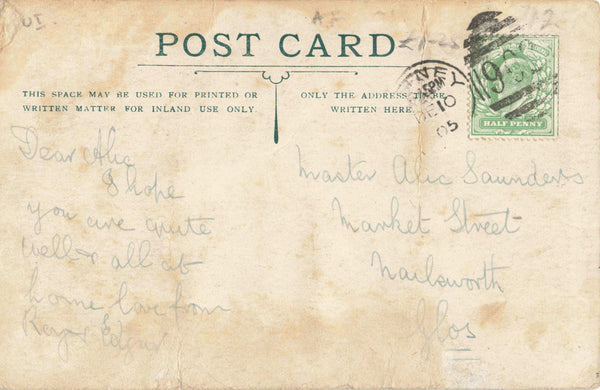 POST CARD
THIS SPACE MAY BE USED FOR PRINTED OR
WRITTEN MATTER FOR INLAND USE ONLY.
ONLY THE ADDRESS TO BE
WRITTEN HERE.
NEY
DE 10
05
HALF PENNY
Dear Alic
I hope
you are quite
well & all at
home love from
Master Alic Saunders
Market Street
Nailsworth
Glos